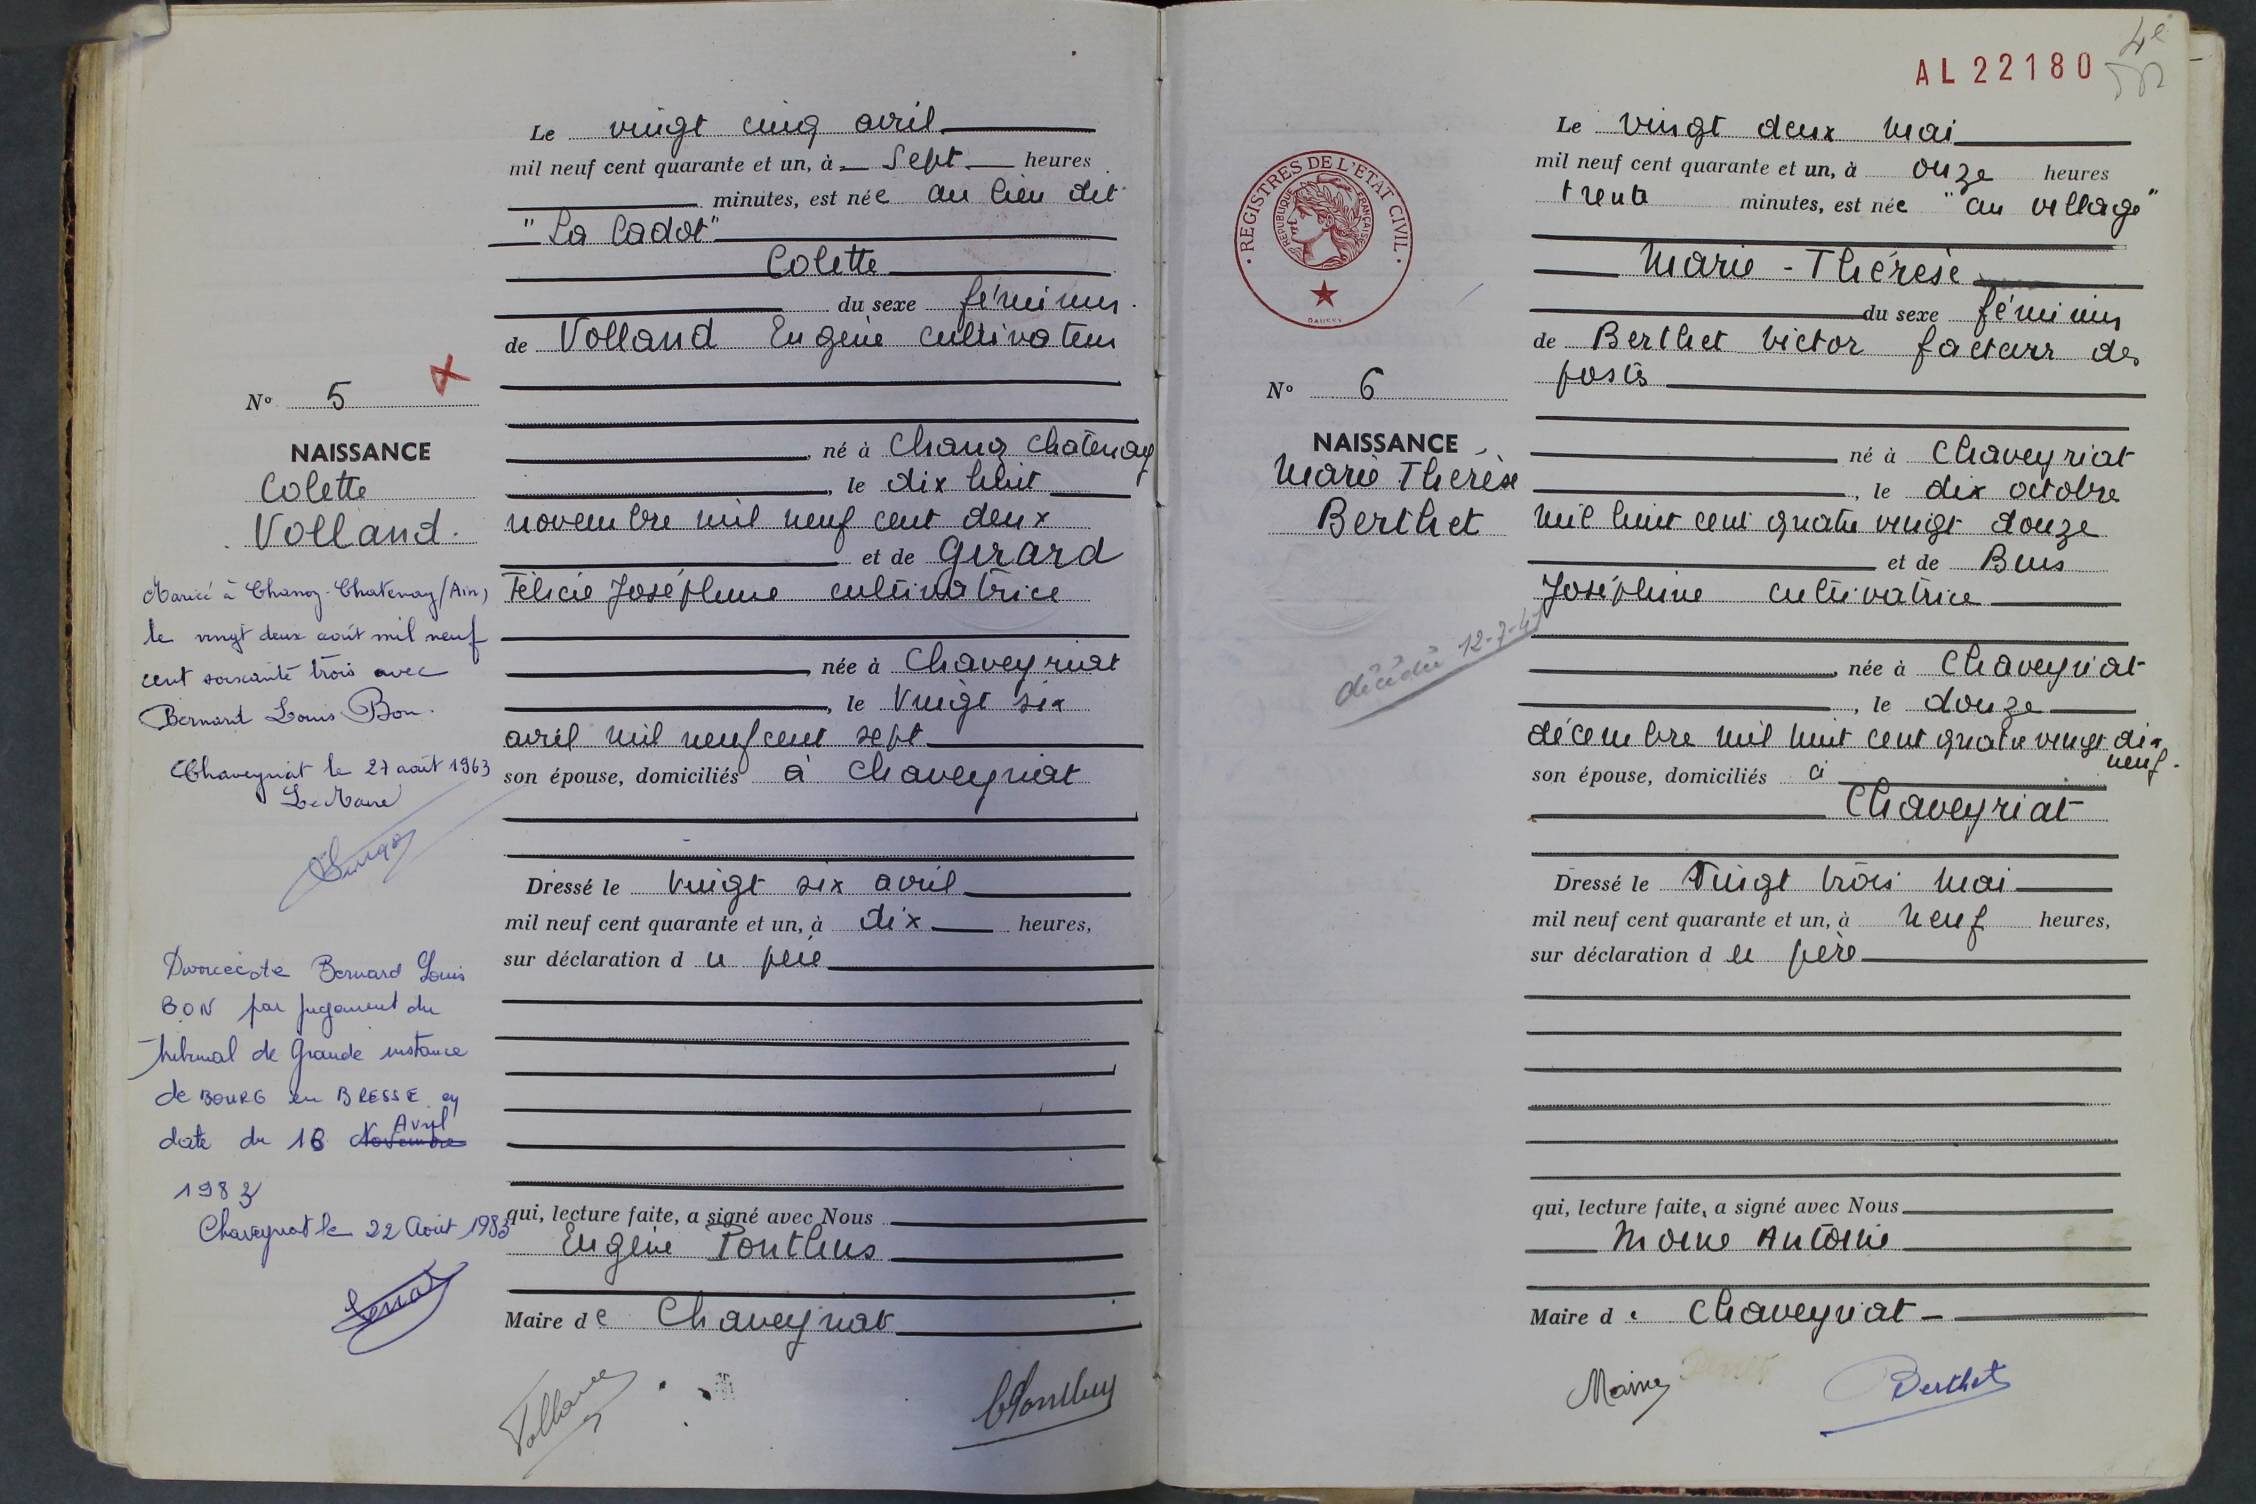 Le vingt cinq avril
mil neuf cent quarante et un, à sept heures
minutes, est née au lieu dit
"La Cadot"
Colette
du sexe féminin
de Volland Eugène cultivateur
né à Chanoz Chatenay
, le dix huit
novembre mil neuf cent deux
et de Girard
Félicie Joséphine cultivatrice
née à Chaveyriat
, le vingt six
avril mil neuf cent sept
son épouse, domiciliés à Chaveyriat
Dressé le vingt six avril
mil neuf cent quarante et un, à dix heures,
sur déclaration du père
qui, lecture faite, a signé avec Nous
Eugène Ponthus
Maire de Chaveyriat
Volland
Nº 5
NAISSANCE
Colette
Volland.
Mariée à Chanoz-Chatenay (Ain)
le vingt deux août mil neuf
cent soixante trois avec
Bernard Louis Bon.
Chaveyriat le 27 août 1963
Le Maire
Divorcée de Bernard Louis
BON par jugement du
Tribunal de Grande instance
de BOURG en BRESSE en
date du 18 Novembre Avril
1983
Chaveyriat le 22 Août 1983
AL22180
4e
REGISTRES DE L'ETAT CIVIL
REPUBLIQUE FRANÇAISE
Le vingt deux mai
mil neuf cent quarante et un, à onze heures
trente minutes, est née "au village"
Marie-Thérèse
du sexe féminin
de Berthet Victor facteur des
postes
né à Chaveyriat
, le dix octobre
mil huit cent quatre vingt douze
et de Buis
Joséphine cultivatrice
née à Chaveyriat
, le douze
décembre mil huit cent quatre vingt dix
neuf.
son épouse, domiciliés à
Chaveyriat
Dressé le vingt trois mai
mil neuf cent quarante et un, à neuf heures,
sur déclaration du père
qui, lecture faite, a signé avec Nous
Moine Antoine
Maire de Chaveyriat
Berthet
Nº 6
NAISSANCE
Marie Thérèse
Berthet
décédée 12-7-41